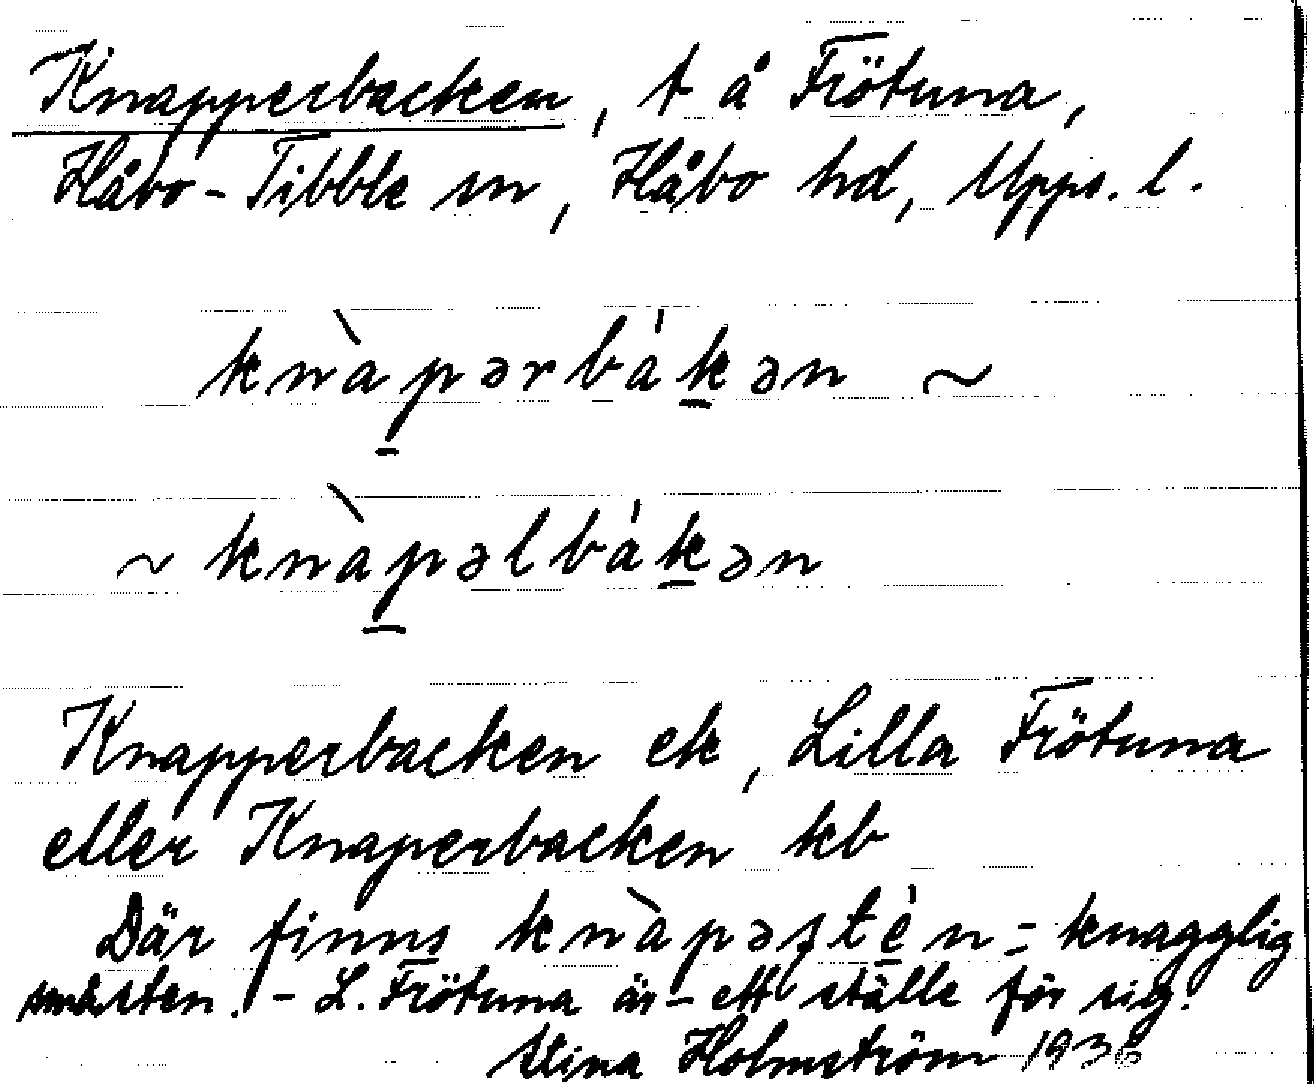 Knapperbacken, t å Frötuna,
Håbo-Tibble sn, Håbo hd, Upps. l.
knàpərbákən ~
~ knàpəlbákən
Knapperbacken ek, Lilla Frötuna
eller Knaperbacken kb
Där finns knàpəʂtén = knagglig
småsten. - L. Frötuna är ett ställe för sig.
Stina Holmström 1936